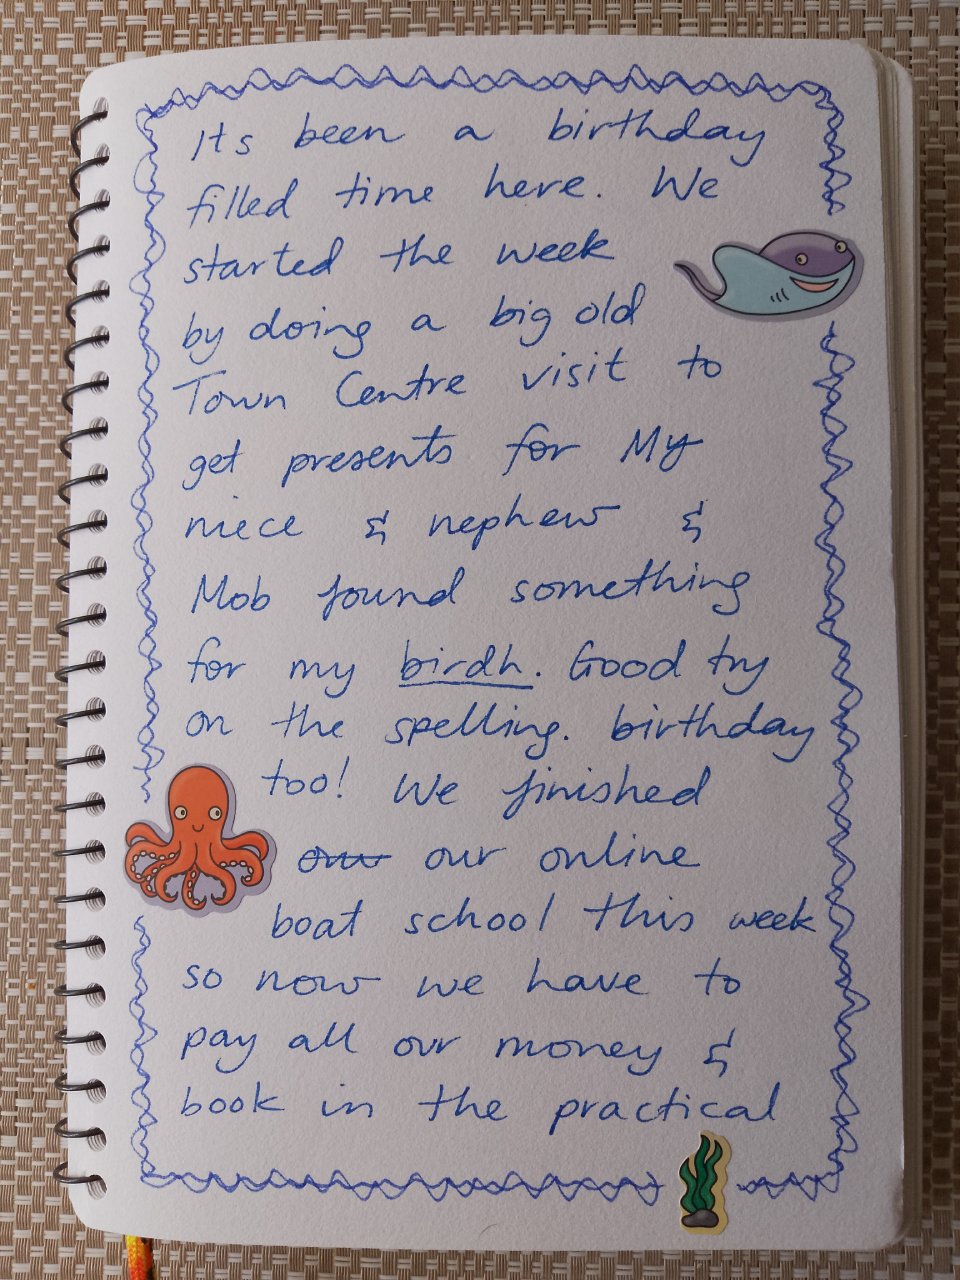 Its been a birthday
filled time here. We
started the week
by doing a big old
Town Centre visit to
get presents for My
niece & nephew &
Mob found something
for my birdh. Good try
on the spelling. birthday
too! We finished
our our online
boat school this week
so now we have to
pay all our money &
book in the practical